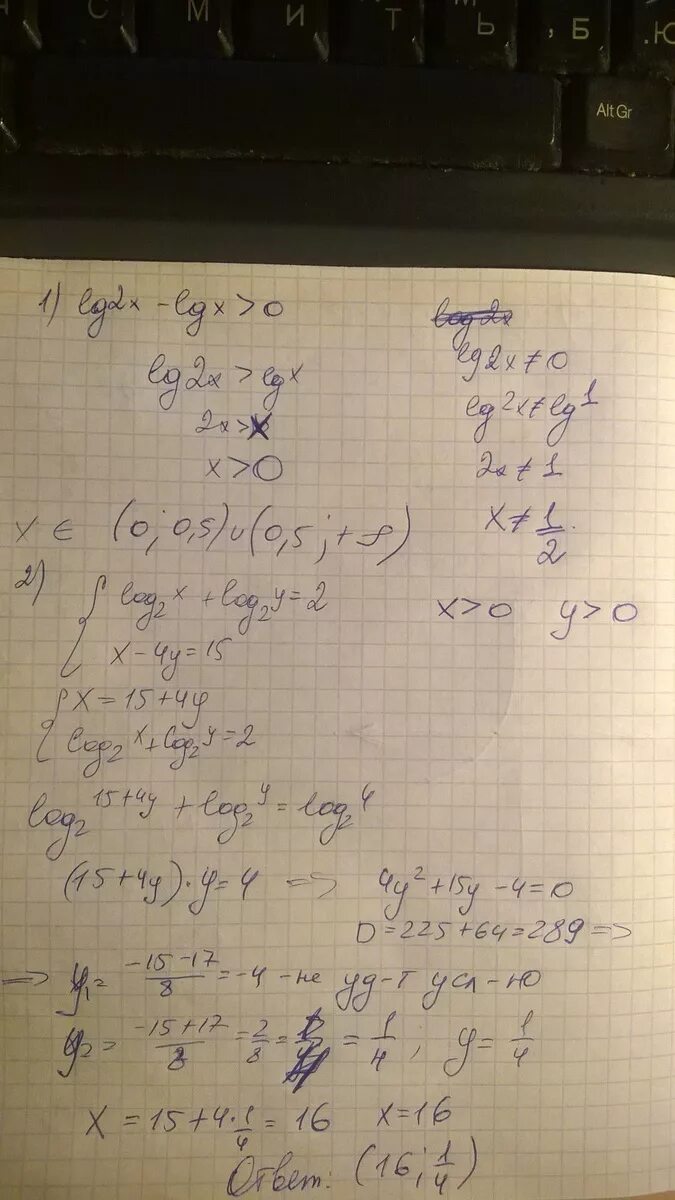 С М И Т Ь , Б . Ю
Alt Gr
1) lg2x - lgx > 0
lg2x > lgx
2x > x
x > 0
lg2x ≠ 0
lg2x ≠ lg1
2x ≠ 1
x ≠ 1/2.
x ∈ (0; 0,5) ∪ (0,5; +∞)
2) { log₂x + log₂y = 2
x - 4y = 15
x > 0 y > 0
{ x = 15 + 4y
log₂x + log₂y = 2
log₂15+4y + log₂y = log₂4
(15 + 4y) · y = 4 => 4y² + 15y - 4 = 0
D = 225 + 64 = 289 =>
=> y₁ = (-15 - 17)/8 = -4 - не уд-т усл-ю
y₂ = (-15 + 17)/8 = 2/8 = 1/4 ; y = 1/4
x = 15 + 4 · 1/4 = 16 x = 16
Ответ: (16; 1/4)